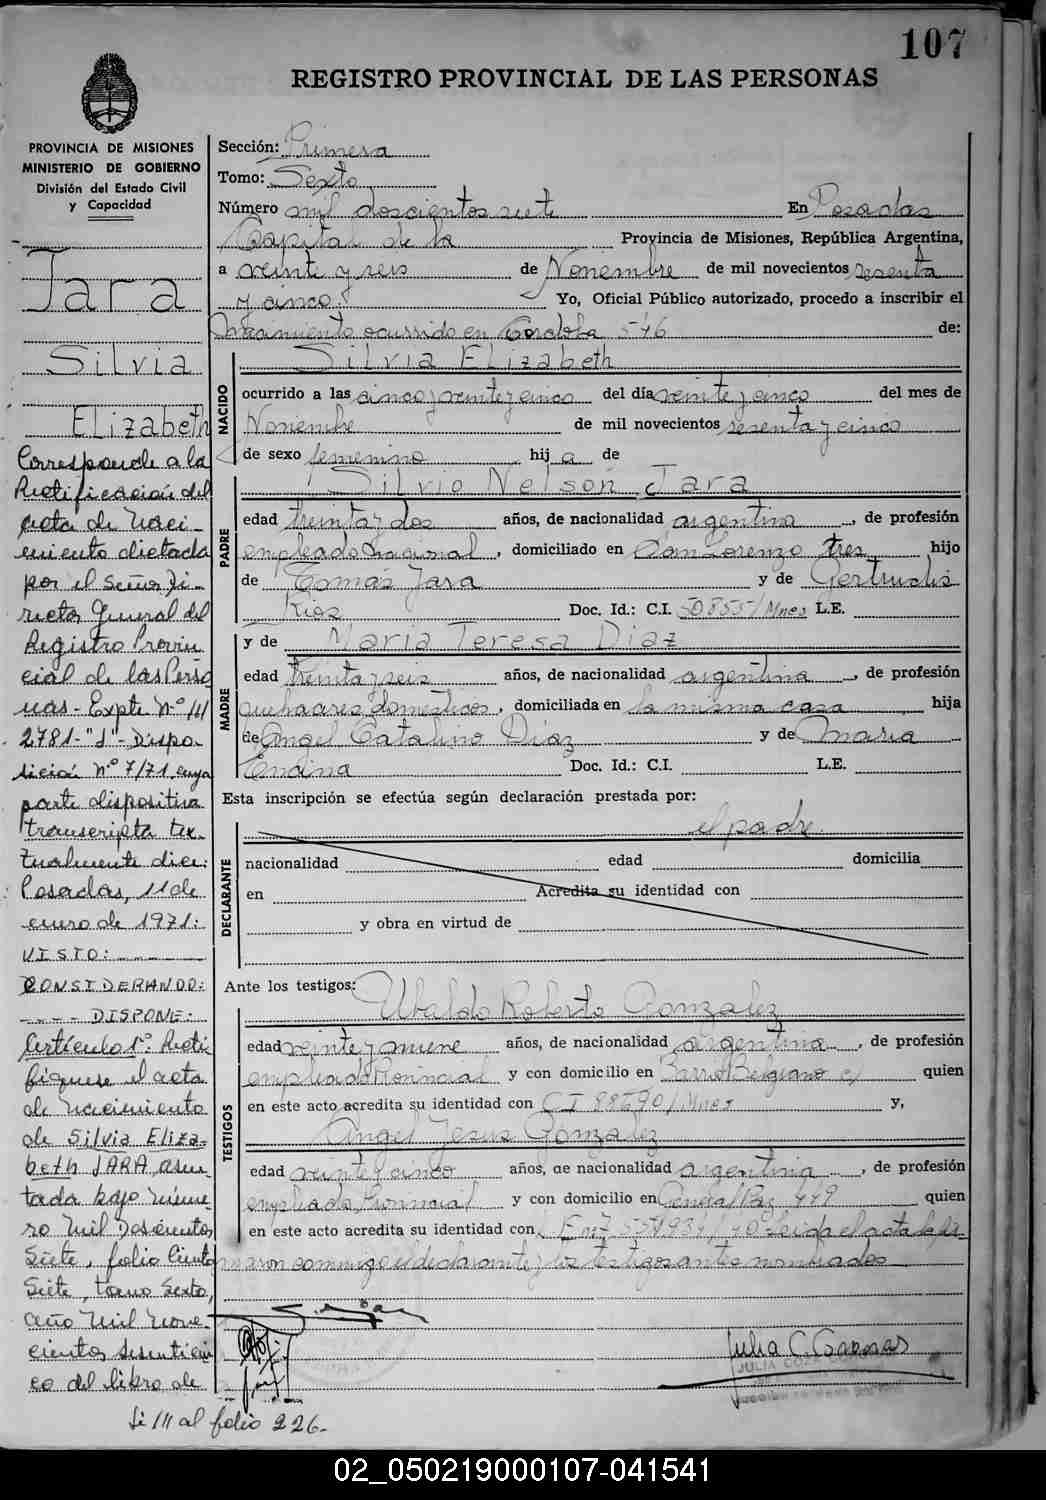 107
REGISTRO PROVINCIAL DE LAS PERSONAS
PROVINCIA DE MISIONES
MINISTERIO DE GOBIERNO
División del Estado Civil
y Capacidad
Jara
Silvia
Elizabeth
Corresponde a la
Rectificación del
acta de Naci-
miento dictada
por el Señor Di-
rector General del
Registro Provin
cial de las Perso
nas - Expte Nº ///
2781-"J"- Dispo
sición nº 7/71 cuya
parte dispositiva
transcripta tex-
tualmente dice:
Posadas, 11 de
enero de 1971:
VISTO:
CONSIDERANDO:
DISPONE:
Artículo 1º: Recti
fíquese el acta
de nacimiento
de Silvia Eliza-
beth JARA asen
tada bajo núme-
ro Mil Doscientos
Siete, folio Ciento
Siete, tomo Sexto,
año Mil Nove-
cientos sesenticin
co del libro de
Si /// al folio 226.-
Sección: Primera
Tomo: Sexto
Número mil doscientos siete En Posadas
Capital de la Provincia de Misiones, República Argentina,
a veinte y seis de Noviembre de mil novecientos sesenta
y cinco. Yo, Oficial Público autorizado, procedo a inscribir el
nacimiento ocurrido en Córdoba 576 de:
NACIDO
Silvia Elizabeth
ocurrido a las cinco y veinte y cinco del día veinte y cinco del mes de
Noviembre de mil novecientos sesenta y cinco
de sexo femenino hij a de
PADRE
Silvio Nelson Jara
edad treinta y dos años, de nacionalidad argentina, de profesión
empleado nacional, domiciliado en San Lorenzo tres hijo
de Tomás Jara y de Gertrudis
Rios Doc. Id.: C.I. 50855/Mnes L.E.
MADRE
y de Maria Teresa Diaz
edad treinta y seis años, de nacionalidad argentina, de profesión
quehaceres domesticos, domiciliada en la misma casa hija
de Angel Catalino Diaz y de Maria
Encina Doc. Id.: C.I. L.E.
Esta inscripción se efectúa según declaración prestada por:
DECLARANTE
el padre
nacionalidad edad domicilia
en Acredita su identidad con
y obra en virtud de
Ante los testigos: Ubaldo Roberto Gonzalez
TESTIGOS
edad veinte y nueve años, de nacionalidad argentina, de profesión
empleado Provincial y con domicilio en Barrio Belgrano c/ quien
en este acto acredita su identidad con CI 98690/Mnes y,
Angel Jesus Gonzalez
edad veinte y cinco años, de nacionalidad argentina, de profesión
empleado Provincial y con domicilio en General Paz 449 quien
en este acto acredita su identidad con Leida el acta la fir
maron conmigo el declarante y los testigos antes nombrados
Julia C.
JULIA
02_050219000107-041541